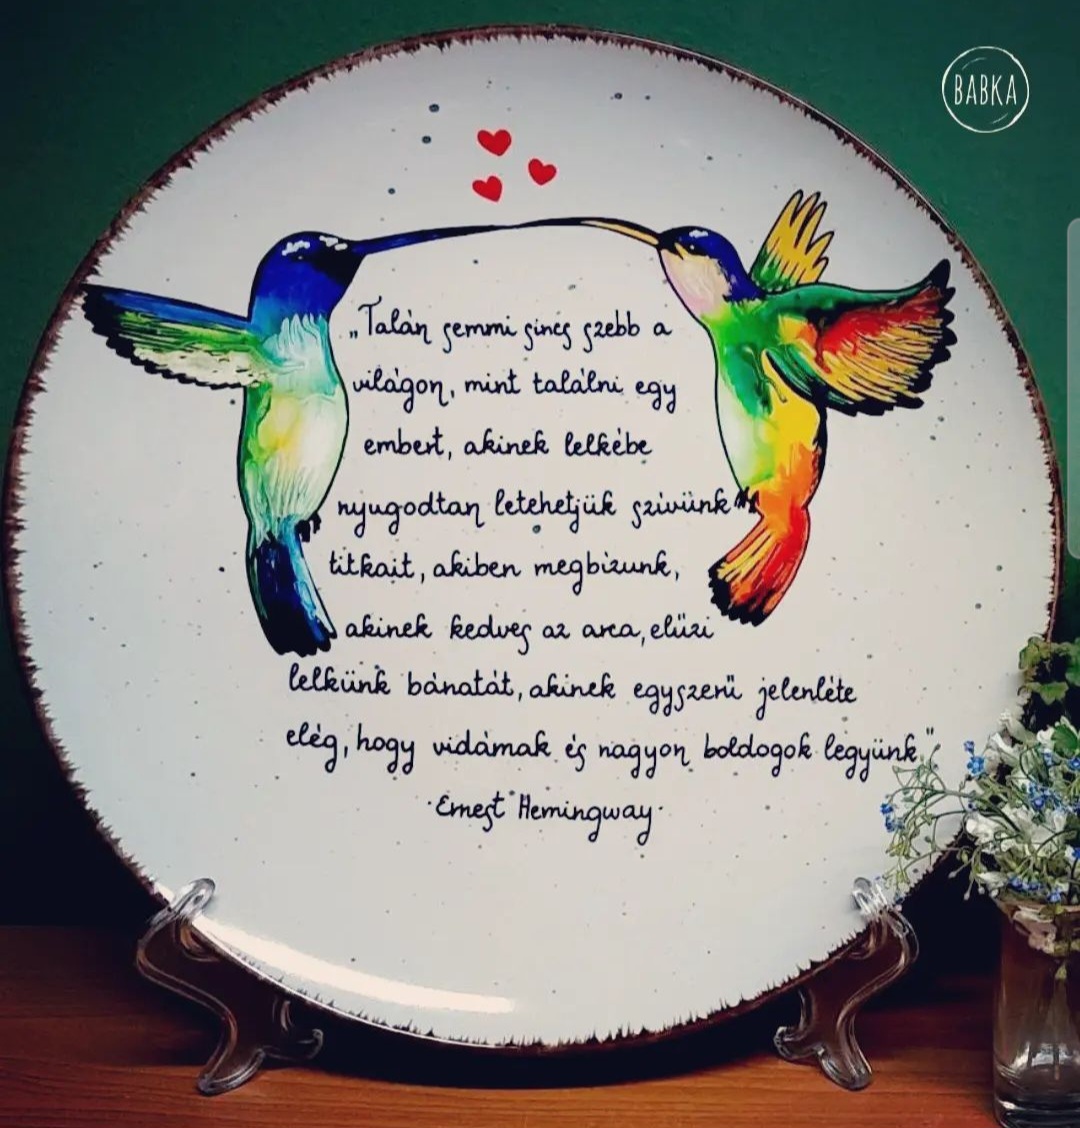 BABKA
„Talán semmi sincs szebb a
világon, mint találni egy
embert, akinek lelkébe
nyugodtan letehetjük szívünk
titkait, akiben megbízunk,
akinek kedves az arca, elűzi
lelkünk bánatát, akinek egyszerű jelenléte
elég, hogy vidámak és nagyon boldogok legyünk."
·Ernest Hemingway·